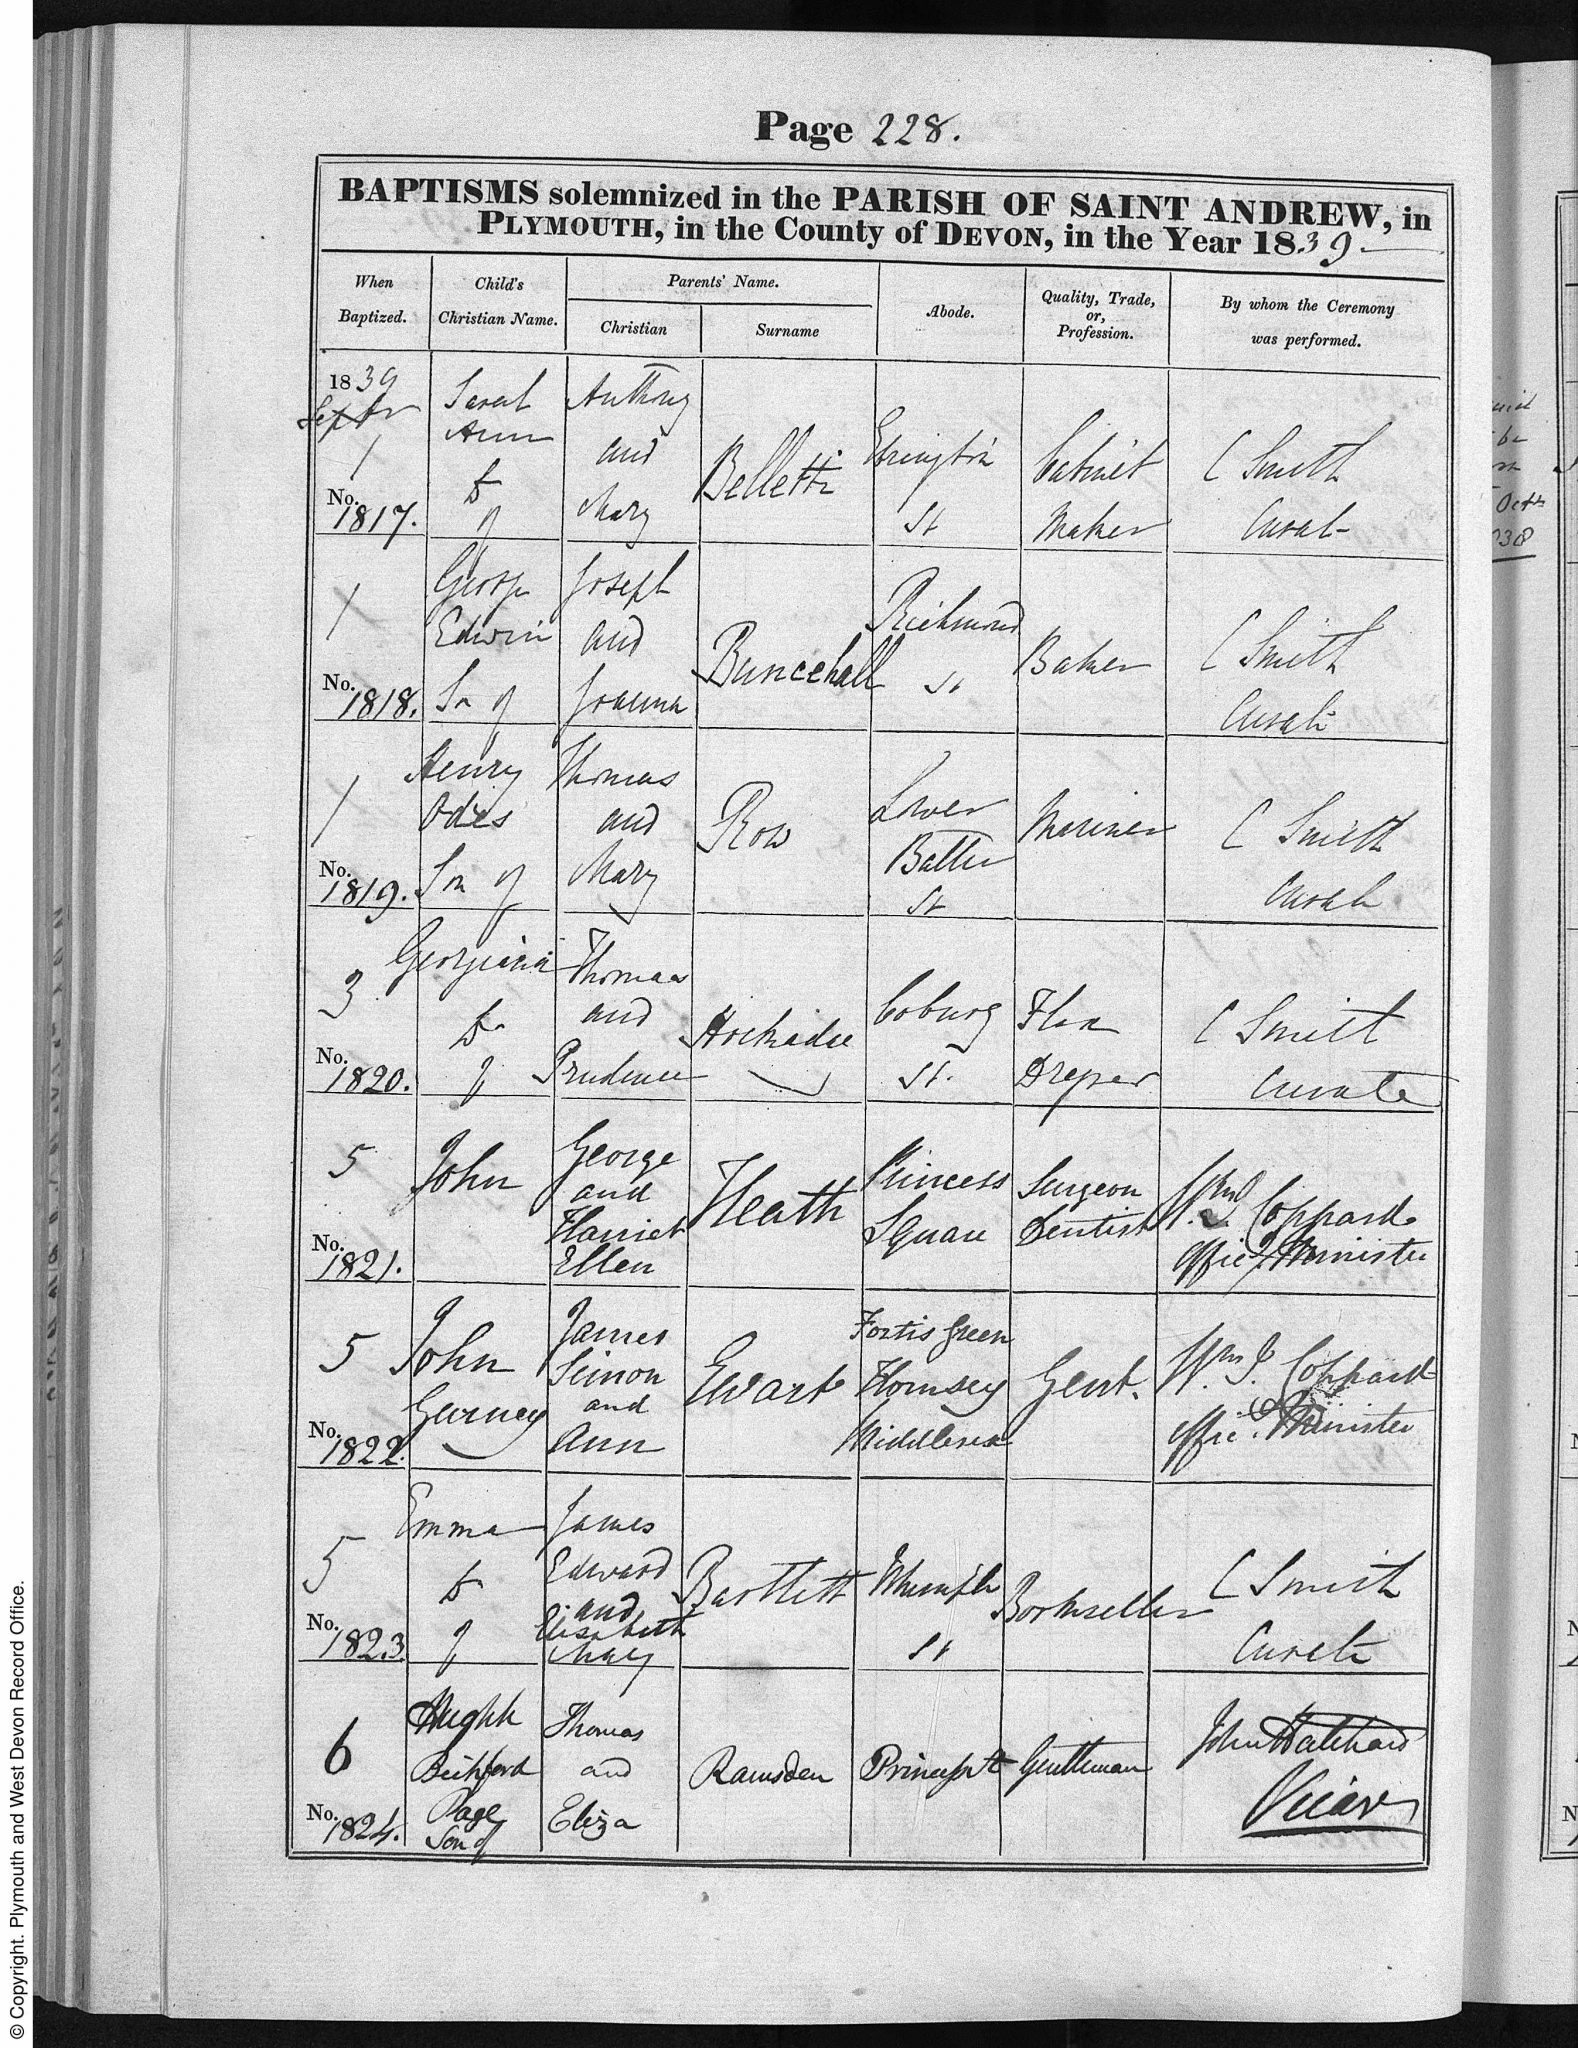 Page 228.
BAPTISMS solemnized in the PARISH OF SAINT ANDREW, in
PLYMOUTH, in the County of DEVON, in the Year 1839.
When
Baptized.
Child's
Christian Name.
Parents' Name.
Christian
Surname
Abode.
Quality, Trade,
or,
Profession.
By whom the Ceremony
was performed.
1839
Septr
1
No.
1817.
Sarah
Ann
D
of
Anthony
and
Mary
Belletti
Ebrington
St
Cabinet
Maker
C Smith
Curate
1
No.
1818.
George
Edwin
Sn of
Joseph
and
Joanna
Buncehall
Richmond
St
Baker
C Smith
Curate
1
No.
1819.
Henry
Odes
Sn of
Thomas
and
Mary
Row
Lower
Batter
St
Mariner
C Smith
Curate
3
No.
1820.
Georgiana
D
of
Thomas
and
Prudence
Hockaday
Coburg
St.
Draper
C Smith
Curate
5
No.
1821.
John
George
and
Harriet
Ellen
Heath
Princess
Square
Surgeon
Dentist
Wm J. Coppard
Offic. Minister
5
No.
1822.
John
Gurney
James
Simon
and
Ann
Ewart
Fortis Green
Hornsey
Middlesex
Gent.
Wm J. Coppard
Offic. Minister
5
No.
1823.
Emma
D
of
James
Edward
and
Elizabeth
Mary
Bartlett
St
Bookseller
C Smith
Curate
6
No.
1824.
Hugh
Beckford
Page
Son of
Thomas
and
Eliza
Ramsden
Gentleman
John Hatchard
Vicar
Oct
© Copyright. Plymouth and West Devon Record Office.